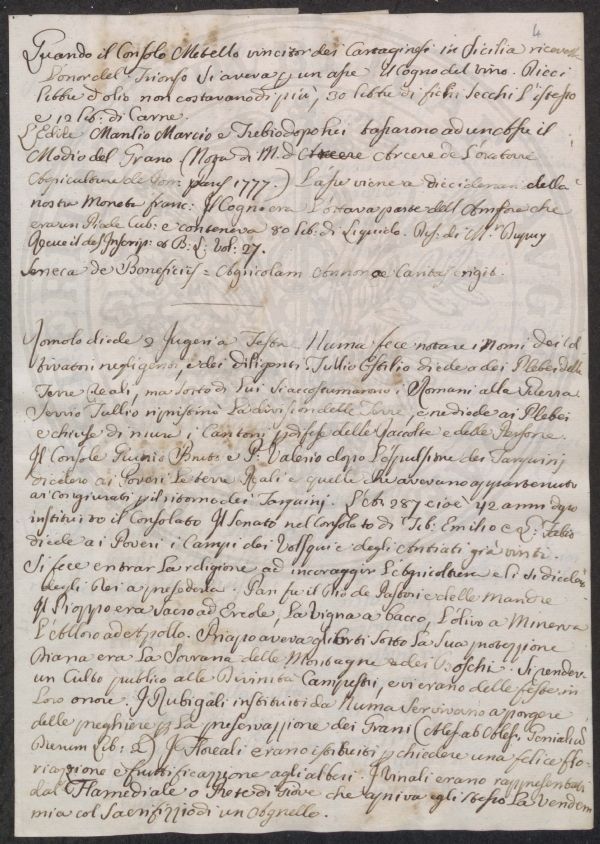 4
Quando il Consolo Metello vincitor dei Cartaginesi in Sicilia ricevette
L'onor del Trionfo si aveva p un asse il Cogno del vino. Dieci
Libbre d'olio non costavano di più, 30 Libbre di fichi secchi l'istesso
e 12 Lib: di Carne.
L'Edile Manlio Marcio e Trebio dopo lui tassarono ad un asse il
Modio del Grano (Noga di M. d' Arcere de L'
Agriculture de Rom: Paris 1777.) L'asse viene a dieci denari della
nostra Moneta franc: Il Cogno era l'ottava parte dell'Amfora che
era un Piede Cub: e conteneva 80 Lib: di Liquido. Dis: di Mr. Dupuy
Recueil des Inscrip: et B: L: Vol: 27.
Seneca de Beneficiis = Agricolam Annonae Caritas erigit.
Romolo diede 2 Jugeri a Testa Numa fece notare i Nomi dei Col
tivatori negligenti, e dei diligenti Tullio Ostilio diede a dei Plebei delle
Terre Reali, ma sotto di lui si accostumarono i Romani alla Guerra
Servio Tullio ripristinò la divisione delle Terre, e ne diede ai Plebei
e chiuse di mura i Cantoni p difesa delle Raccolte e delle Persone.
Il Console Giunio Bruto e P. Valerio dopo l'espulsione dei Tarquinj
diedero ai Poveri le terre Reali e quelle che avevano appartenuto
ai congiurati p il ritorno dei Tarquinj. L'An: 287 cioè 42 anni dopo
instituito il Consolato Il Senato nel Consolato di Tib: Emilio e Q: Fabio
diede ai Poveri i Campi dai Volsqui e degli Antiati già vinti.
Si fece entrar la religione ad incoraggir l'Agricoltura e li si diedero
degli Dei a presederla. Pan fu il Dio de Pastori e delle Mandre
Il Pioppo era sacro ad Ercole, La vigna a Bacco, L'olivo a Minerva
L'Alloro ad Apollo. Priapo aveva gli Orti sotto la sua protezzione
Diana era la Sovrana delle Montagne e dei Boschi. Si rendeva
un Culto publico alle Divinità Campestri, e vi erano delle feste in
Loro onore. I Rubigali instituiti da Numa servivano a porgere
delle preghiere p la preservazzione dei Grani (Alex ab Alex: Genialium
Dierum Lib: 2) I Floreali erano istituiti p chiedere una felice flo-
riazzione e fruttificazzione agli alberi. I Vinali erano rappresentati
dal Flamediale o Prete di Giove che apriva egli stesso la vendem
mia col Sacrifizzio di un Agnello.